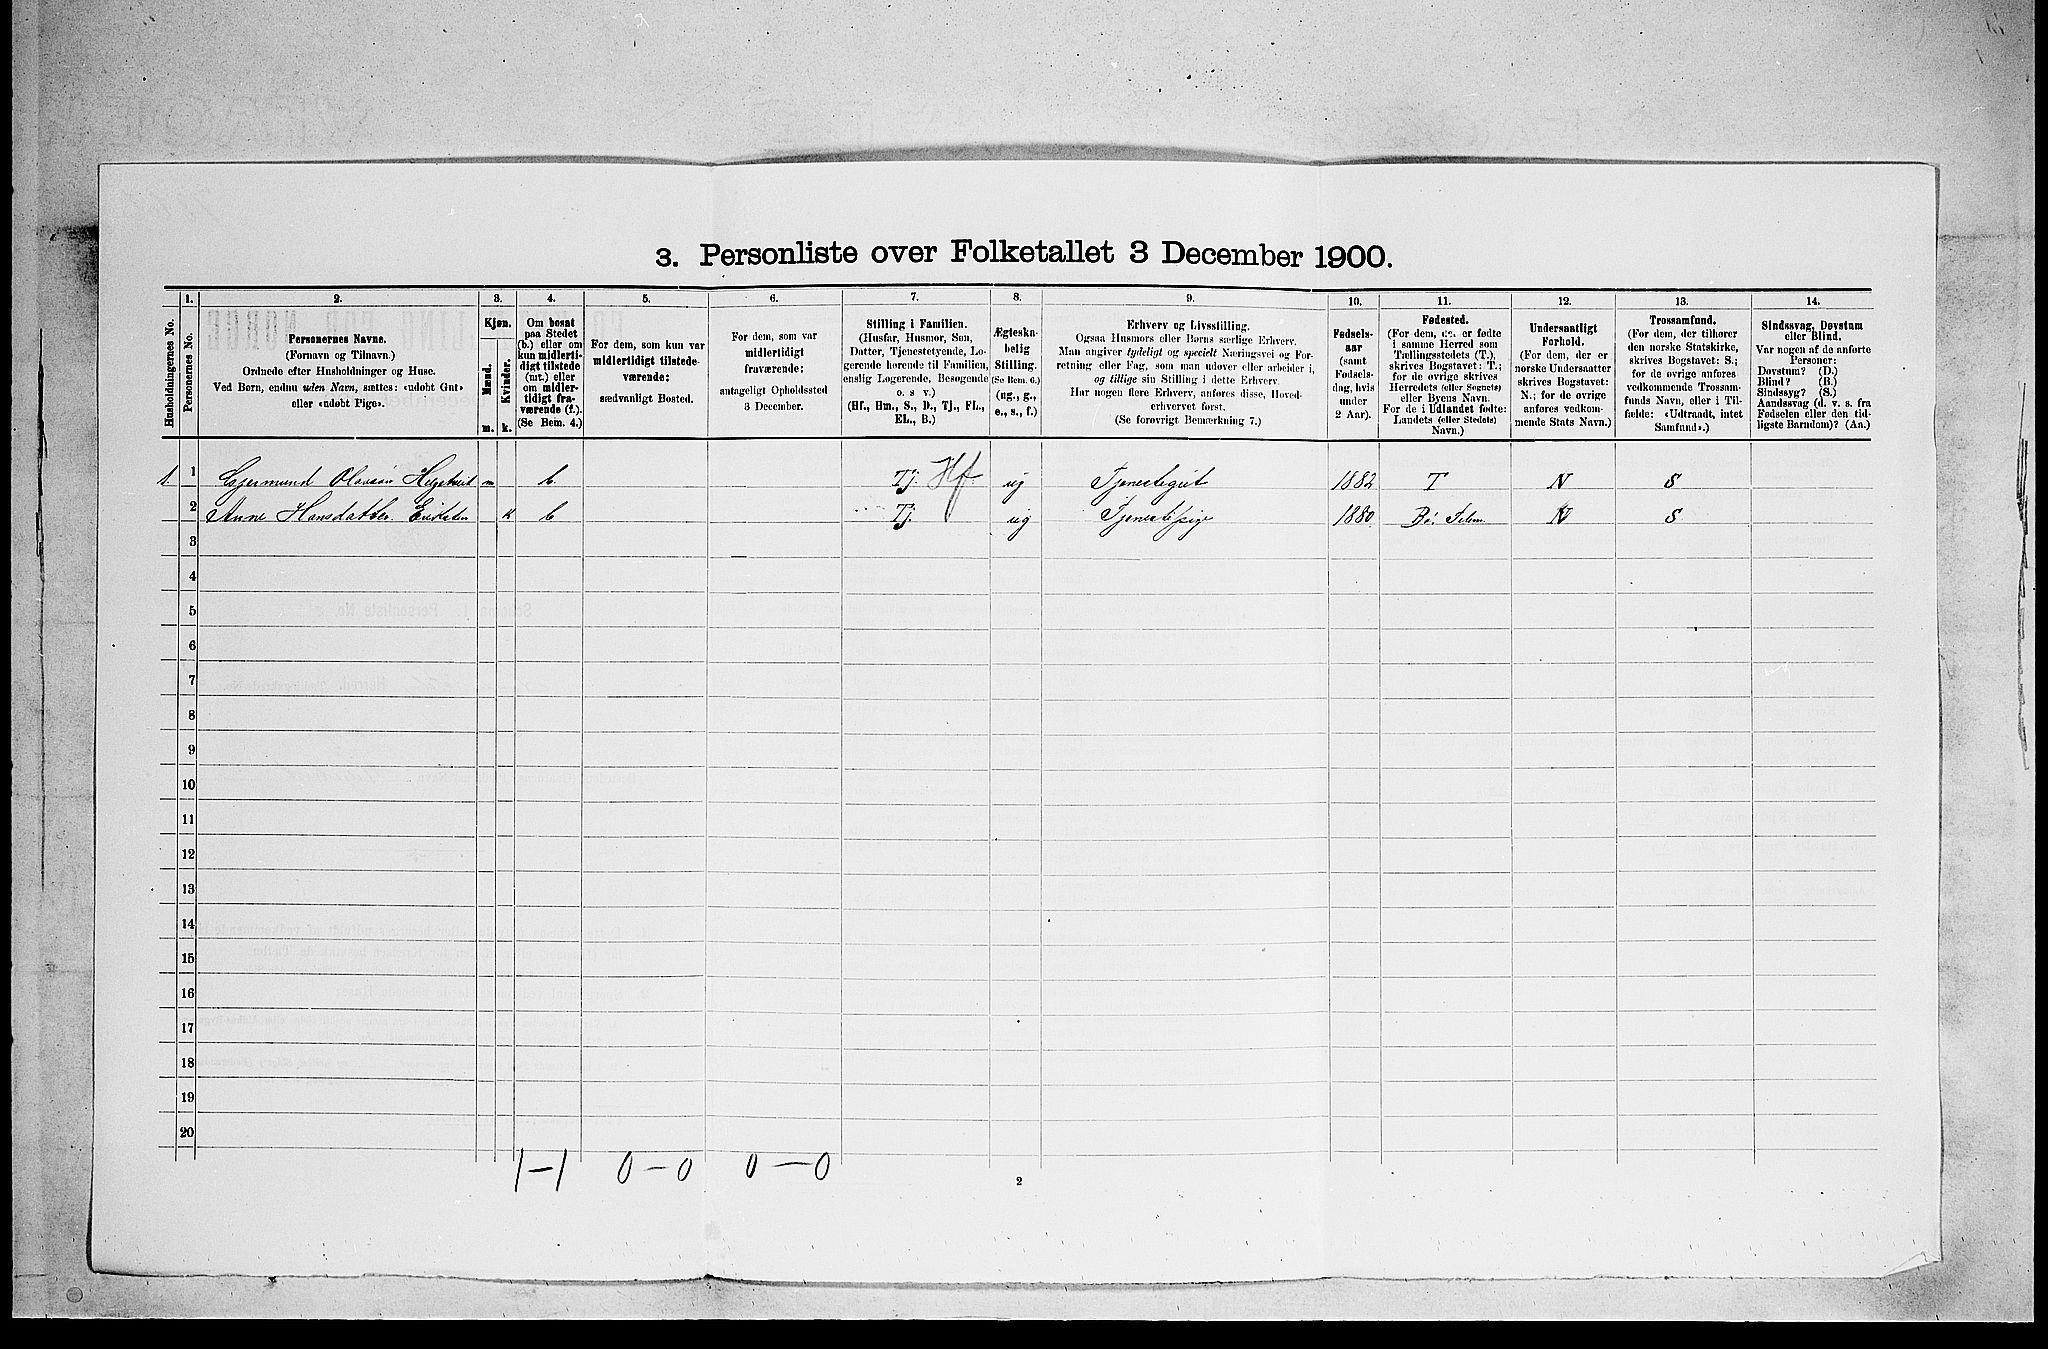 3. Personliste over Folketallet 3 December 1900.
1. 2. 3. 4. 5. 6. 7. 8. 9. 10. 11. 12. 13. 14.
Husholdningernes No.
Personernes No.
Personernes Navne.
(Fornavn og Tilnavn.)
Ordnede efter Husholdninger og Huse.
Ved Børn, endnu uden Navn, sættes: «udøbt Gut»
eller «udøbt Pige».
Kjøn.
Mænd.
Kvinder.
m. k.
Om bosat
paa Stedet
(b.) eller om
kun midlerti-
digt tilstede
(mt.) eller
om midler-
tidigt fra-
værende (f.).
(Se Bem. 4.)
For dem, som kun var
midlertidigt tilstede-
værende:
sædvanligt Bosted.
For dem, som var
midlertidigt
fraværende:
antageligt Opholdssted
3 December.
Stilling i Familien.
(Husfar, Husmor, Søn,
Datter, Tjenestetyende, Lo-
gerende hørende til Familien,
enslig Logerende, Besøgende
o. s v.)
(Hf., Hm., S., D., Tj., FL.,
EL., B.)
Ægteska-
belig
Stilling.
(Se Bem. 6.)
(ug., g.,
e., s., f.)
Erhverv og Livsstilling.
Ogsaa Husmors eller Børns særlige Erhverv.
Man angiver tydeligt og specielt Næringsvei og For-
retning eller Fag, som man udøver eller arbeider i,
og tillige sin Stilling i dette Erhverv.
Har nogen flere Erhverv, anføres disse, Hoved-
erhvervet først.
(Se forøvrigt Bemærkning 7.)
Fødsels-
aar
(samt
Fødsels-
dag, hvis
under
2 Aar).
Fødested.
(For dem, der er fødte
i samme Herred som
Tællingsstedets (T.),
skrives Bogstavet: T.;
for de øvrige skrives
Herredets (eller Sognets)
eller Byens Navn.
For de i Udlandet fødte:
Landets (eller Stedets)
Navn.)
Undersaatligt
Forhold.
(For dem, der er
norske Undersaatter
skrives Bogstavet:
N.; for de øvrige
anføres vedkom-
mende Stats Navn.)
Trossamfund.
(For dem, der tilhører
den norske Statskirke,
skrives Bogstavet: S.;
for de øvrige anføres
vedkommende Trossam-
funds Navn, eller i Til-
fælde: «Udtraadt, intet
Samfund».)
Sindssvag, Døvstum
eller Blind.
Var nogen af de anførte
Personer:
Døvstum? (D.)
Blind? (B.)
Sindssyg? (S.)
Aandssvag (d. v. s. fra
Fødselen eller den tid-
ligste Barndom)? (Aa.)
1. 1 Olavsøn m b. Tj. Hf. ug Tjenestegut 1882 T N S
2 Anne Hansdatter k b Tj. ug Tjenestepige 1880. Bø. Telem. N S
3
4
5
6
7
8
9
10
11
12
13
14
15
16
17
18
19
20
1-1 0-0 0-0
2